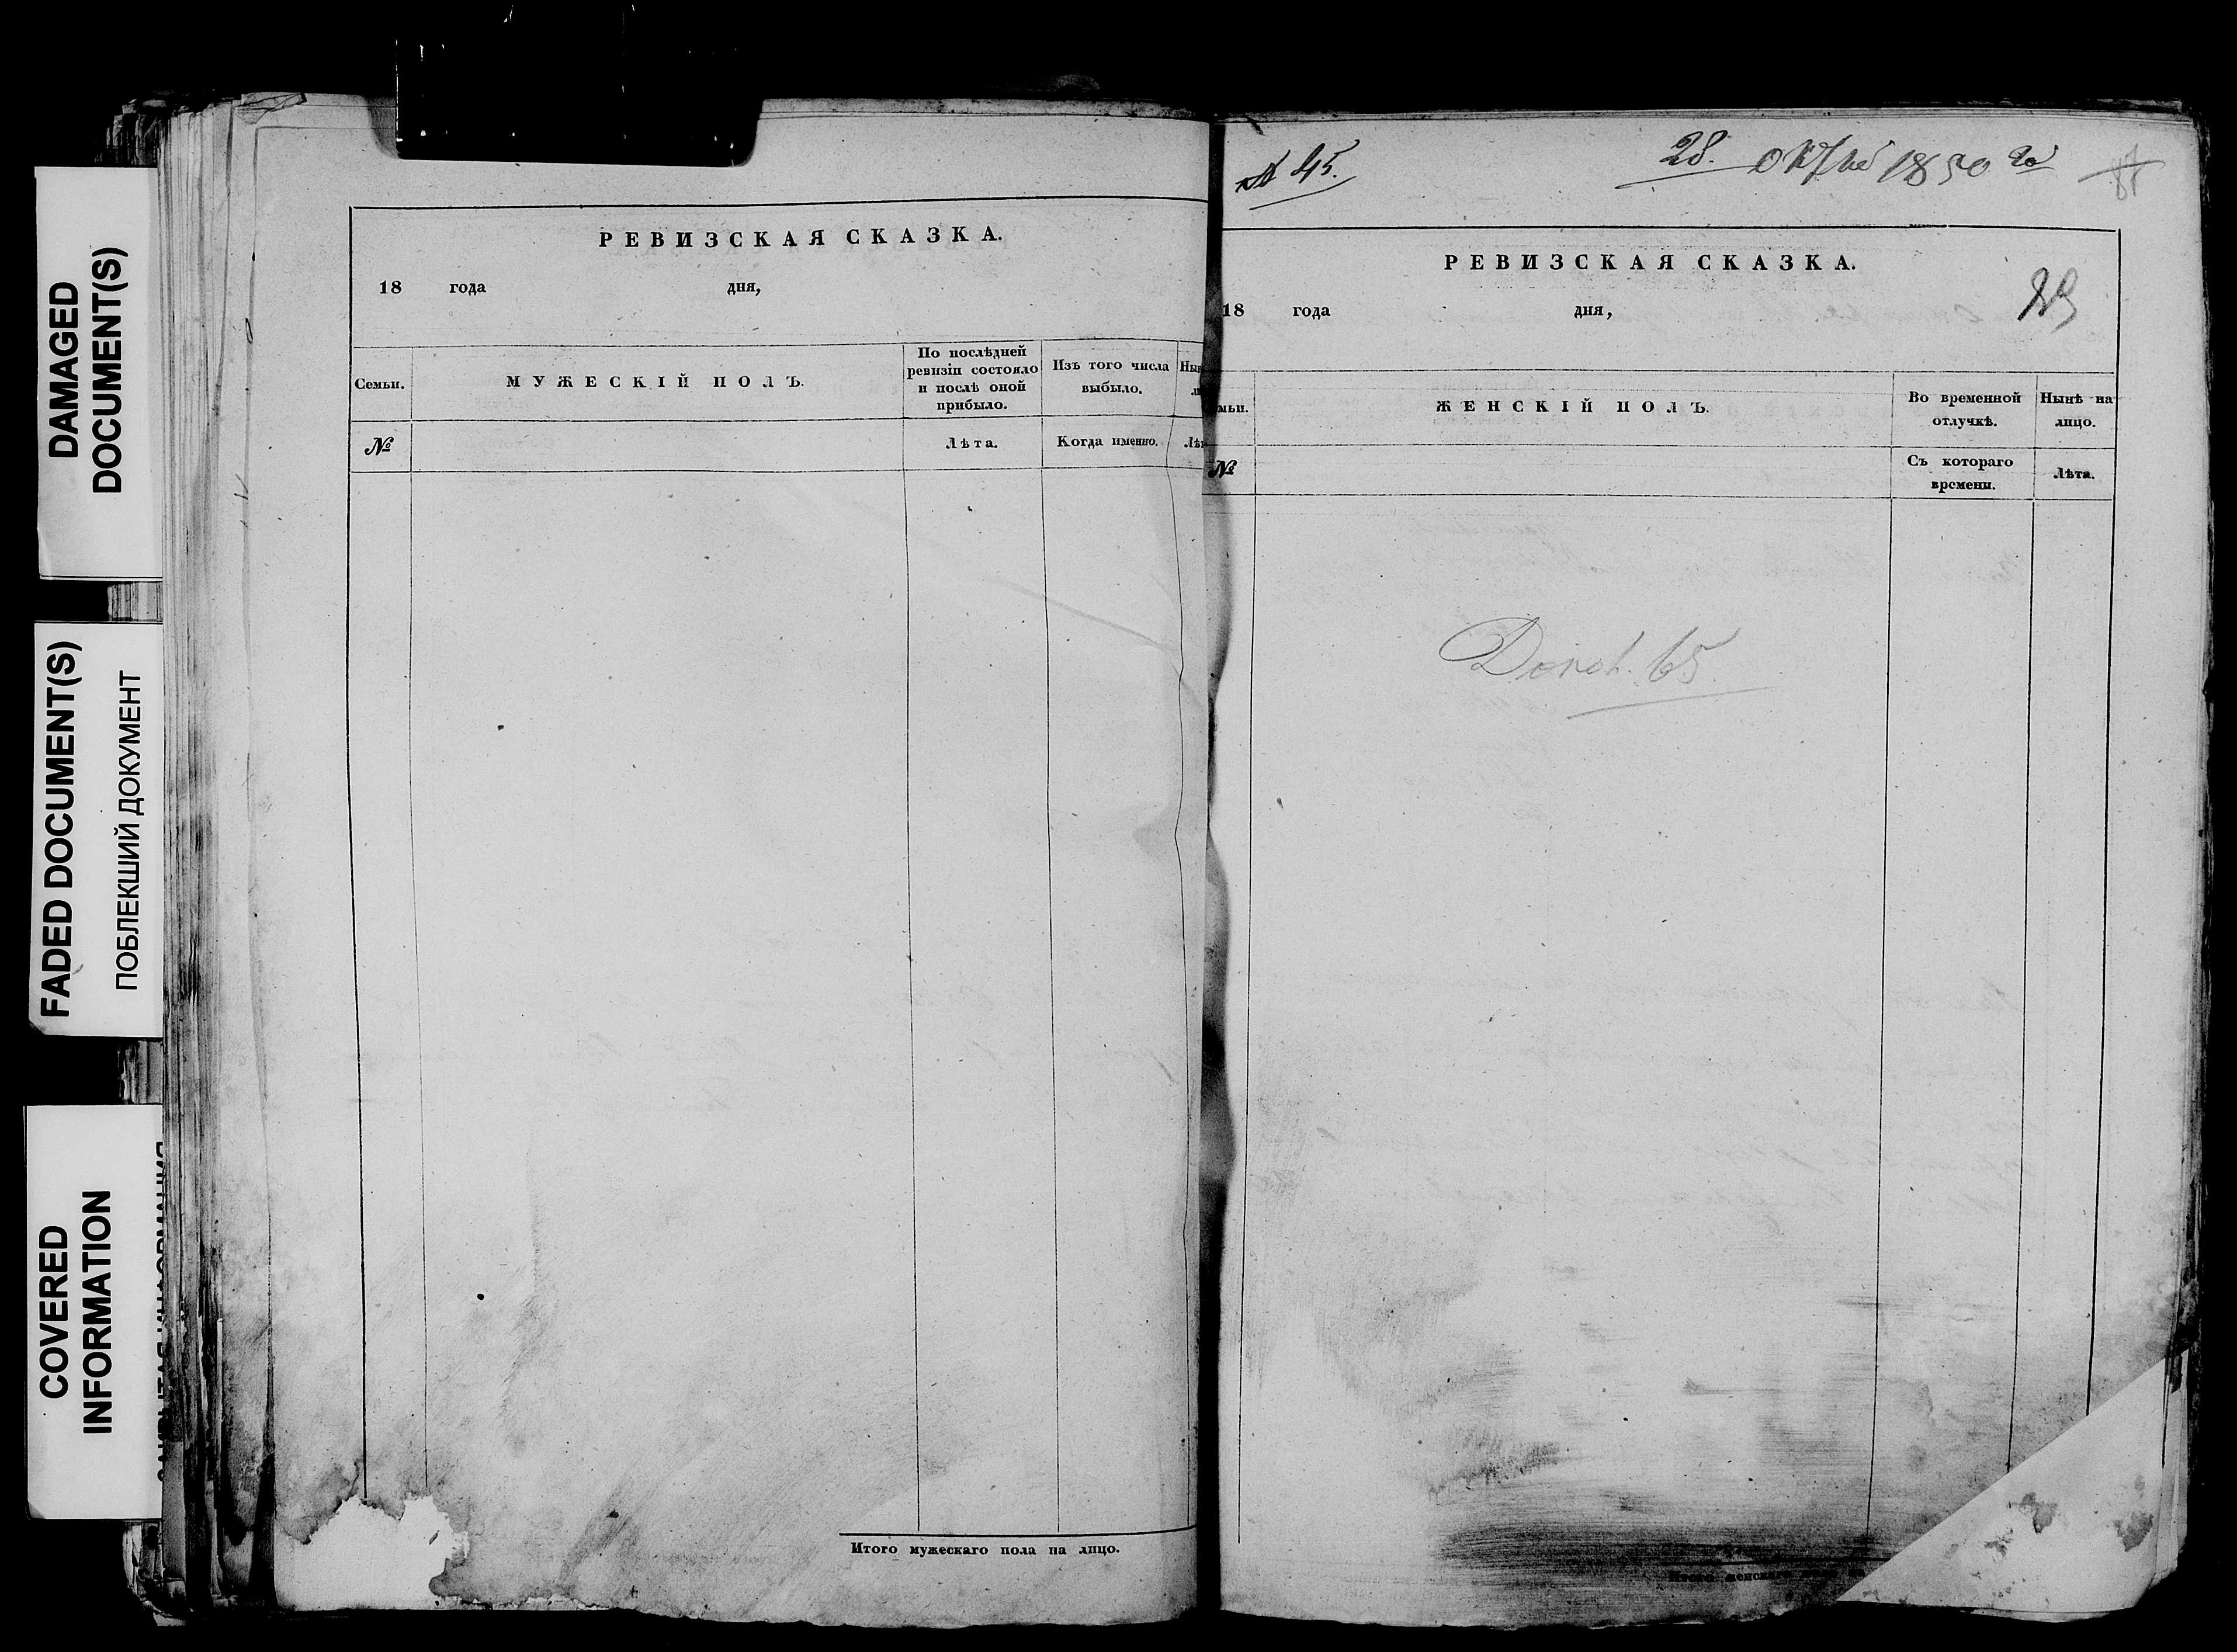 DAMAGED
DOCUMENT(S)
FADED DOCUMENT(S)
ПОБЛЕКШИЙ ДОКУМЕНТ
COVERED
INFORMATION
РЕВИЗСКАЯ СКАЗКА.
18 года дня,
Семьи.
МУЖЕСКІЙ ПОЛЪ.
По послѣдней
ревизіи состояло
и послѣ оной
прибыло.
Изъ того числа
выбыло.
№
Лѣта.
Когда именно.
Итого мужескаго пола на лицо.
№ 45.
28. 1850 го
РЕВИЗСКАЯ СКАЗКА.
18 года дня,
ЖЕНСКІЙ ПОЛЪ.
Во временной
отлучкѣ.
Нынѣ на
лицо.
№
Съ котораго
времени.
Лѣта.
65.
Итого женскаго